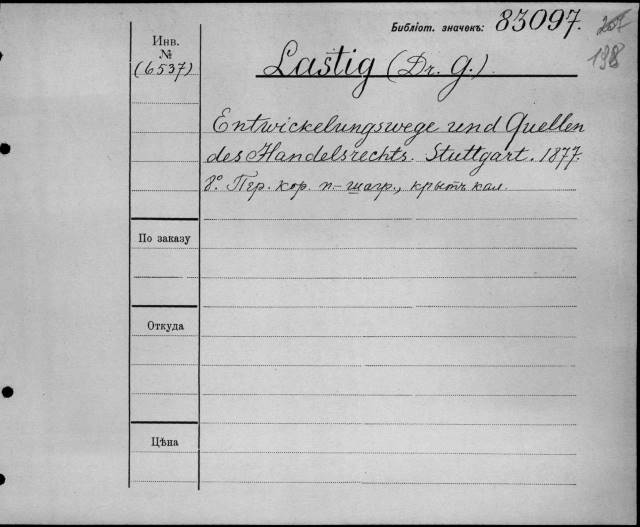 Библіот. значекъ: 83097.
198
Инв.
№
(6537)
Lastig (Dr. G.)
Entwickelungswege und Quellen
des Handelsrechts. Stuttgart. 1877.
8º. Пер. кор. п.-шагр., крытъ кал.
По заказу
Откуда
Цѣна